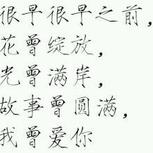 很早很早之前，
花曾绽放，
光曾满岸，
故事曾圆满，
我曾爱你